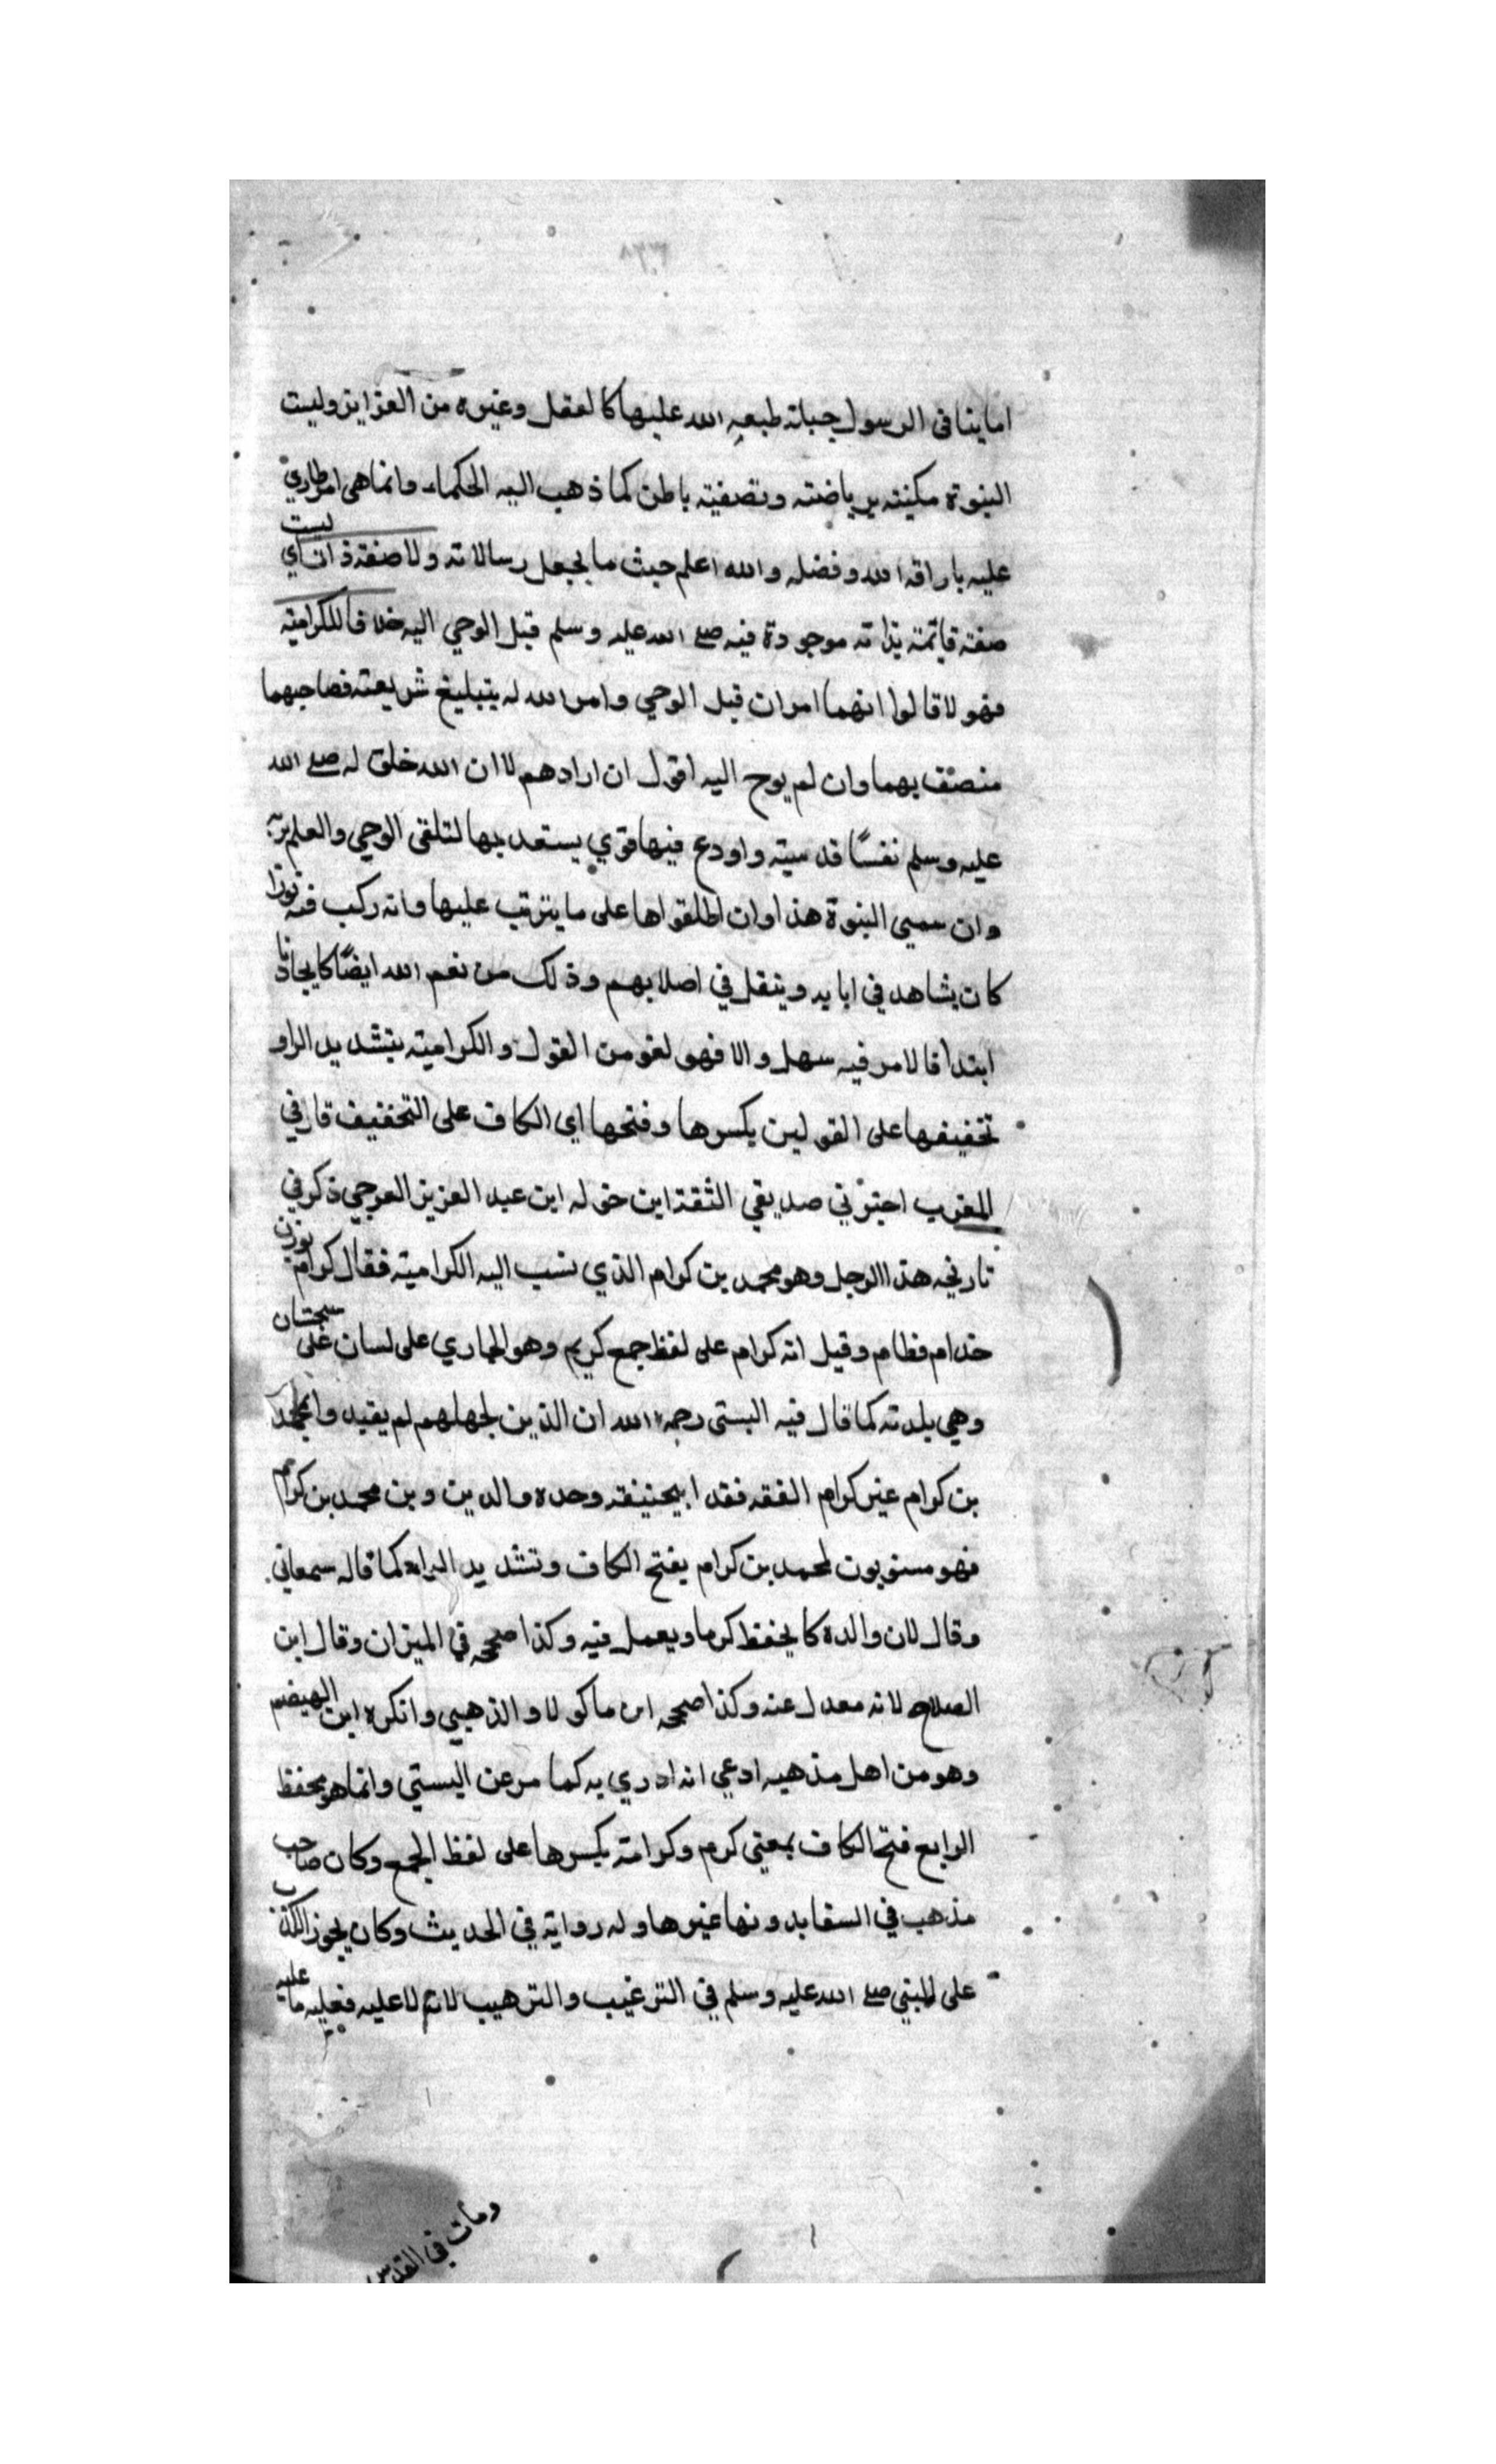 اما ينافى الرسول جبلته طبعه الله عليها كالعقل وغيره من الغرايز وليست
النبوة مكينته برياضته وتصفيته باطن كما ذهب اليه الحكماء وانما هى امر طاري
عليه باراقة الله وفضله والله اعلم حيث ما يجعل رسالاته وليست ولا صفة ذات اي
صفته قائمته بذاته موجودة فيه صلے الله عليه وسلم قبل الوحي اليه خلافا للكراميته
فهولا قالوا انهما امران قبل الوحي وامر الله له بتبليغ شريعته فصاحبهما
متصف بهما وان لم يوح اليه اقول ان ارادهم لا ان الله خلق له صلے الله
عليه وسلم نفسًا قدسيته واودع فيها قوي يستعد بها لتلقى الوحي والعلم
وان سمي النبوة هذا وان اطلقواها على ما يترتب عليها وانه ركب فيه نورا
كان يشاهد في ابايه وينقل في اصلابهم وذلك من نعم الله ايضًا
ابتدا فالامر فيه سهل والا فهو لغو من القول والكراميته بتشديد الراو
تخفيفها على القولين بكسرها وفتحها اي الكاف على التخفيف قال في
المغرب اخبرني صديقي الثقة ابن خوله ابن عبد العزيز العرجي ذكر في
تاريخه هذا الرجل وهو محمد بن كرام الذي نسب اليه الكراميته فقال كرام بوزن
خدام فطام وقيل انه كرام على لفظ جمع كريم وهو الجاري على لسان على سجستان
وهي بلدته كما قال فيه البستى رحمه الله ان الذين لجهلهم لم يقيدوا بمحمد
بن كرام غير كرام الفقه فقد ابيحنيفه وحده والدين وبن محمد بن كرام
فهو منسوبون لمحمد بن كرام بفتح الكاف وتشديد الراء كما قاله سمعاني
وقال لان والده كا يحفظ كرما ويعمل فيه وكذا صححه في الميزان وقال ابن
الصلاح لانه معدل عنه وكذا صححه ابن ماكولا والذهبي وانكره ابن الهيضم
وهو من اهل مذهبه ادعي انه ادري به كما مر عن البستي وانما هو محفظ
الرابع فتح الكاف بمعني كرم وكرامته بكسرها على لفظ الجمع وكان صاحب
مذهب في السقايد ونها غيرها وله رواية في الحديث وكان يجوز الكذب
على النبي صلے الله عليه وسلم في الترغيب والترهيب لانه لا عليه
ومات في القدس